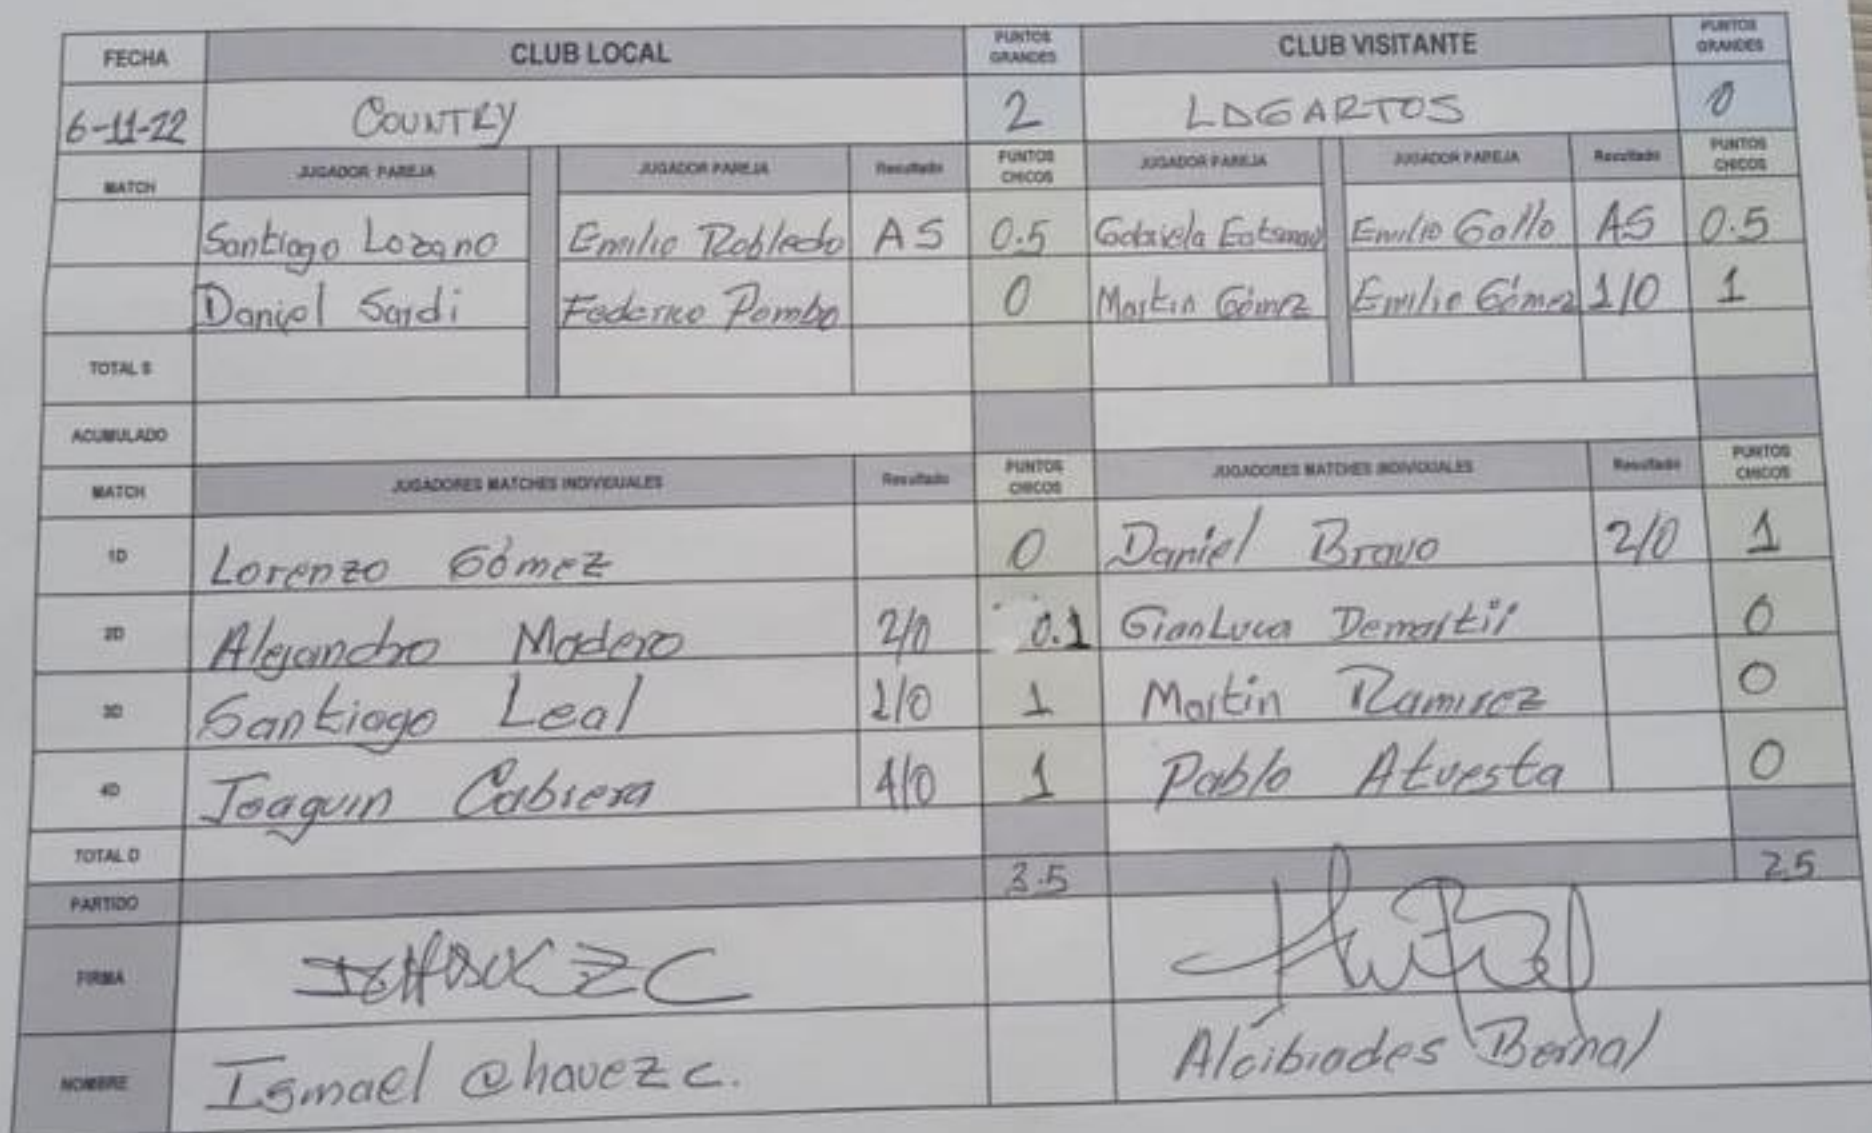 FECHA CLUB LOCAL PUNTOS GRANDES CLUB VISITANTE PUNTOS GRANDES
6-11-22 COUNTRY 2 LAGARTOS 0
MATCH JUGADOR PAREJA JUGADOR PAREJA Resultado PUNTOS CHICOS JUGADOR PAREJA JUGADOR PAREJA Resultado PUNTOS CHICOS
Santiago Lozano Emilio Robledo AS 0.5 Gabriela Emilio Gallo AS 0.5
Daniel Sardi Federico Pombo 0 Martin Gómez Emilio Gómez 1/0 1
TOTAL S
ACUMULADO
MATCH JUGADORES MATCHES INDIVIDUALES Resultado PUNTOS CHICOS JUGADORES MATCHES INDIVIDUALES Resultado PUNTOS CHICOS
1D Lorenzo Gómez 0 Daniel Bravo 2/0 1
2D Alejandro Madero 2/0 0.1 GianLuca 0
3D Santiago Leal 1 Martin Ramirez 0
4D Joaquin Cabrera 4/0 1 Pablo Atuesta 0
TOTAL D
PARTIDO 3.5 2.5
FIRMA
NOMBRE Ismael Chavez C. Alcibiades Bernal